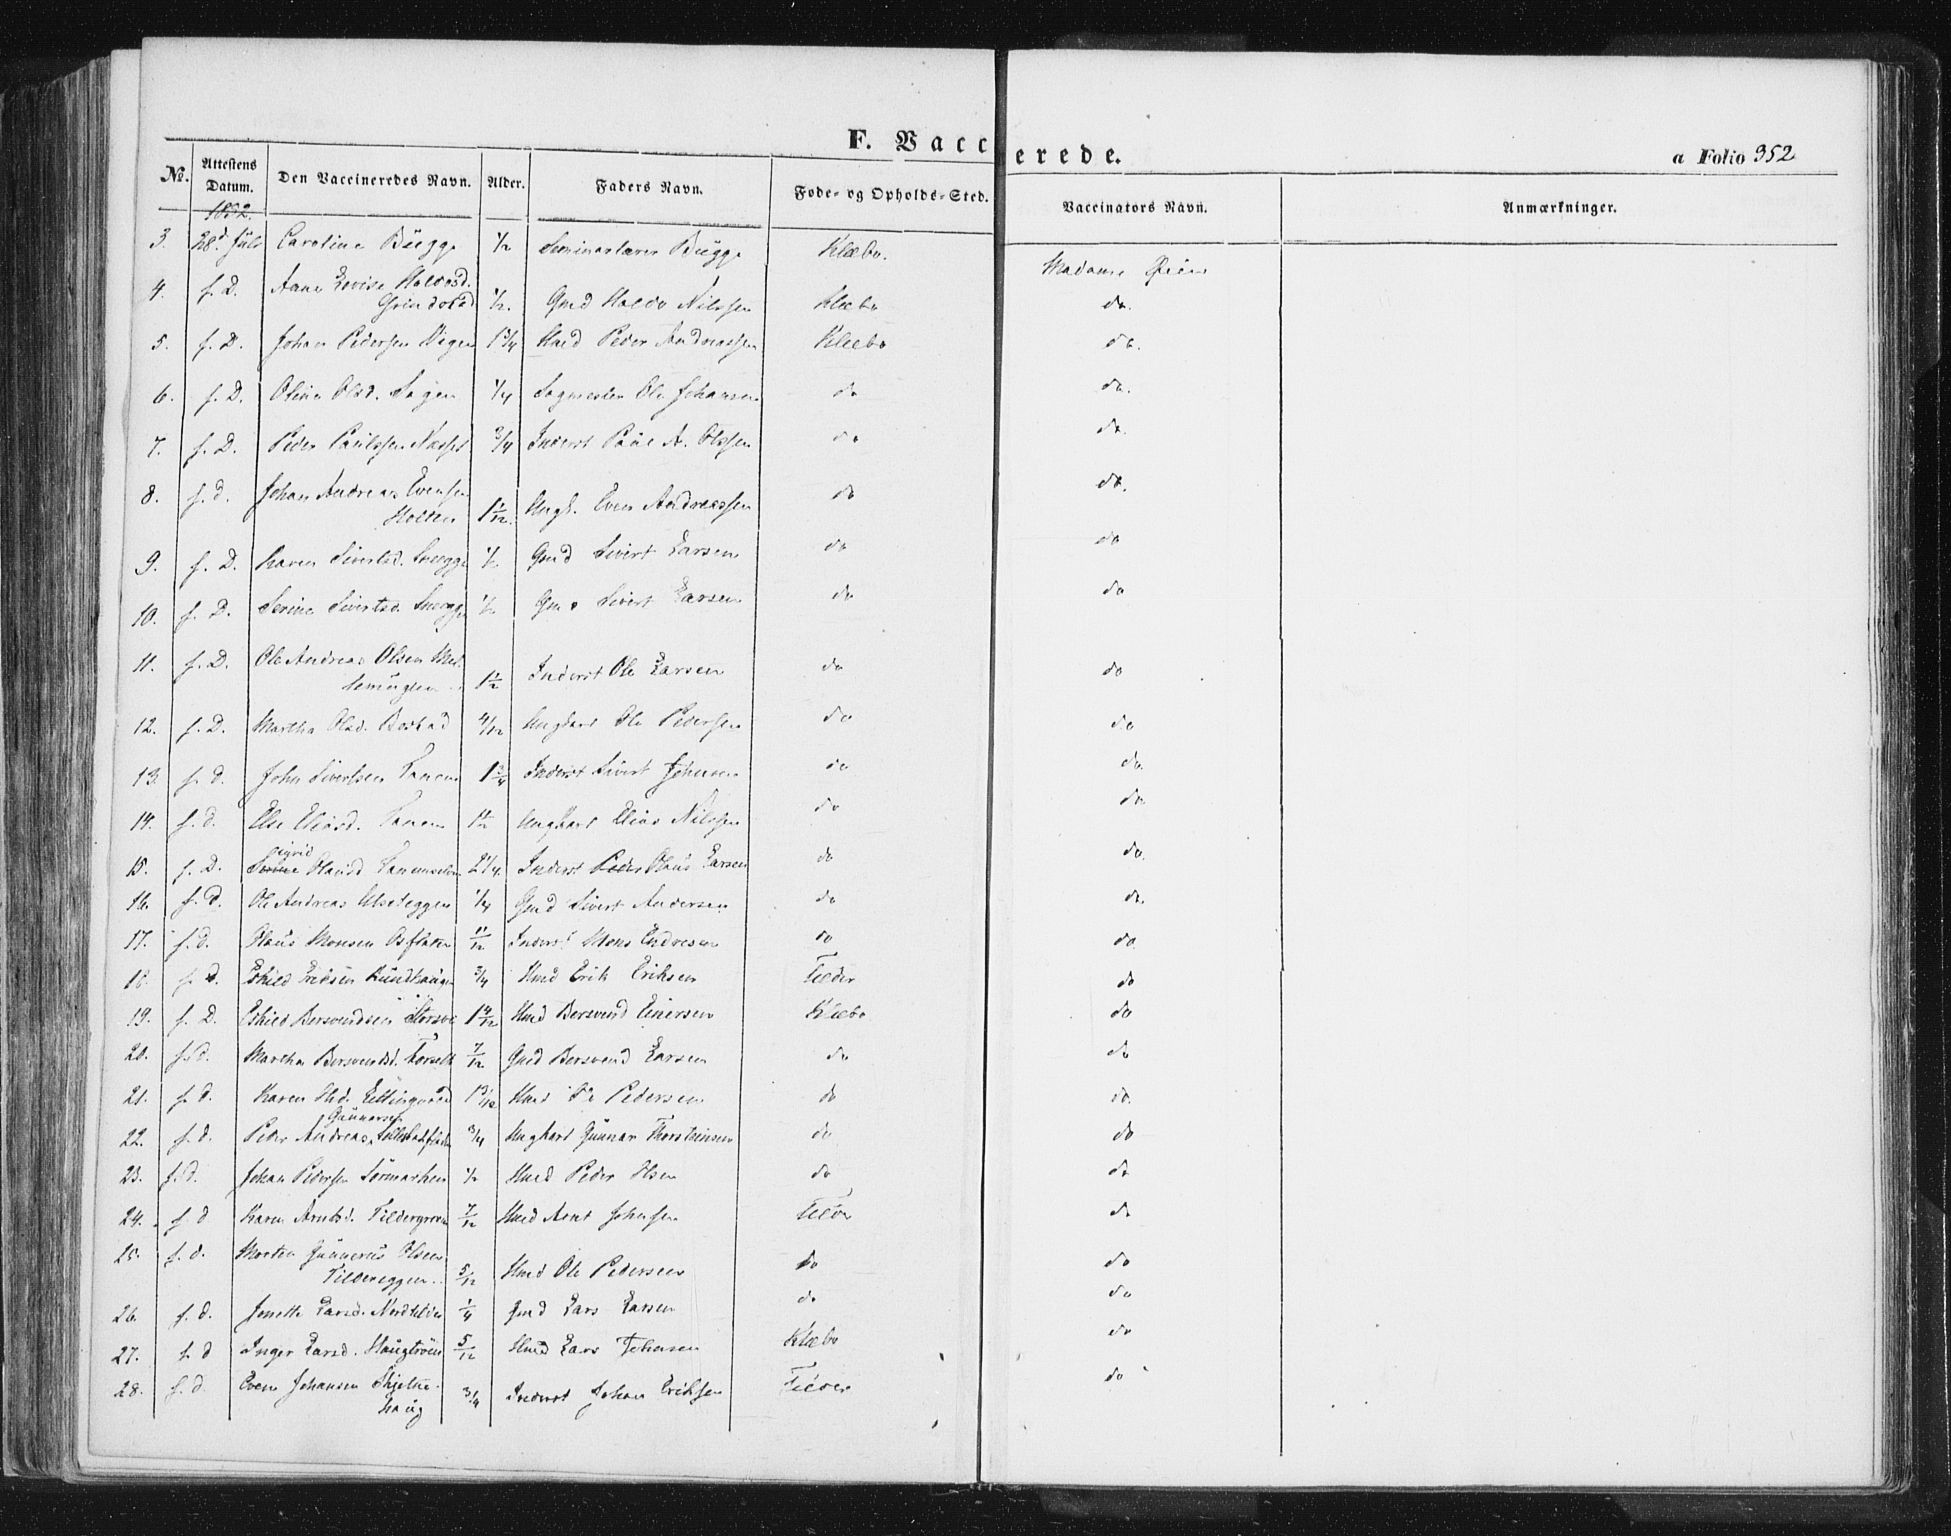 F. Vaccinerede.
a Folio 352
No. Attestens Datum. Den Vaccineredes Navn. Alder. Faders Navn. Føde- og Opholds-Sted. Vaccinators Navn. Anmærkninger.
1852.
3. 28d Juli Caroline Bügge 1/2 Seminarlærer Bügge Klæbo. Madame Øien
4. f. D. Anne Lovise Halvosd. Gmd Haldo Nilssen Klæbo do.
1/2.
5. f. D. Johan Pedersen Vigen 1 3/4 Hmd Peder Andreassen Klæbo do.
6. f. D. Oline Olsd. Sagen 1/4 Sagmester Ole Johansen do do.
7. f. D. Peder Paulssen Nesset 3/4 Inderst Paul A. Olssen do do.
8. f. d. Johan Andreas Evensen
Holten 1 1/12. Ungk. Even Andreassen do do.
9. f. D. Karen Sivertsd. 1/2 Gmd Sivert Larsen do do
10. f. D. Serine Sivertsd. 1/2 Gmd Sivert Larsen do do
11. f. D. Ole Andreas Olsen
1 1/2 Inderst Ole Larsen do do
12. f. D. Martha Olsd. Bostad 4/12 Ungkarl Ole Pedersen do do
13. f. d. John Sivertsen Tanem 1 3/4 Inderst Sivert Johnsen do do.
14. f. d. Else Eliasd. Tanem 1 1/2 Ungkarl Elias Nilssen do do.
Sigrid
15. f. D. Serine Olausd 2 1/4. Inderst Peder Olaus Larsen do do.
16. f. d. Ole Andreas Ulseteggen 1/4 Gmd Sivert Andersen do do.
17. f. d. Olaus Monsen 11/12 Inderst Mons Endresen do do
18. f. d. Eskild Eriksen Rundhaugen 3/4 Hmd Erik Eriksen Tiller do
19. f. D. Eskild Bersvendsen 1 4/12 Hmd Bersvend Einersen Klæbo do
20. f. d. Martha Bersvendsd. Forseth 7/12 Gmd Bersvend Larsen do do
21. f. d. Karen 1 3/12 Hmd Pedersen do do.
Gunnarsen
22. f. d. Peder Andreas 3/4 Ungkarl Gunnar Thorsteinsen do do
23. f. d. Johan Pedersen Sørmarken 1/2 Hmd Peder Olsen do do
24. f. d Karen Arntsd. Tillergreen 7/12 Hmd Arnt Johnsen Tiller do
25. f. d. Morten Gunnerus Olsen
Tillereggen. 5/12 Hmd Ole Pedersen do do
26. f. d. Jonette Larsd. Nordtiller 1/4 Gmd Lars Larsen do do
27. f. d Inger Larsd. Haugtrøen 5/12 Hmd Lars Johnsen Klæbo do
28. f. d. Even Johansen Skjetne-
haug 3/4 Inderst Johan Eriksen Tiller do